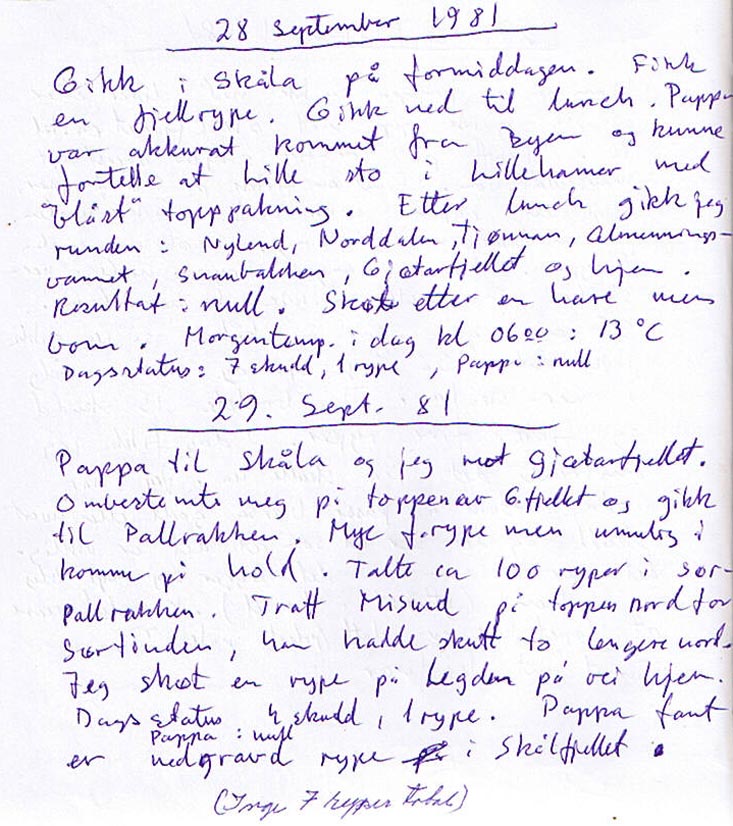 28 September 1981
Gikk i Skåla på formiddagen. Fikk
en fjellrype. Gikk ned til lunch. Pappa
var akkurat kommet fra byen og kunne
fortelle at Lille sto i Lillehamer med
"blåst" topppakning. Etter lunch gikk jeg
runden: Nylend, Norddalen, Tjønnan, Almennings-
vannet, Svanbakken, Gjetarfjellet og hjem.
Resultat: null. Skøt etter en hare men
bom. Morgentemp. i dag kl 0600: 13 °C
Dagsstatus: 7 skudd, 1 rype, Pappa: null
29. Sept. 81
Pappa til Skåla og jeg mot Gjetarfjellet.
Ombestemte meg på toppen av G.fjellet og gikk
til Pallrakken. Mye f.rype men umulig å
komme på hold. Talte ca 100 ryper i sør-
Pallrakken. Traff Misund på toppen nord for
Sørtinden, han hadde skutt to lengere nord.
Jeg skøt en rype på Legden på vei hjem.
Dags status 4 skudd, 1 rype. Pappa fant
Pappa: null
en nedgravd rype i Skålfjellet.
(Inge 7 ryper total)